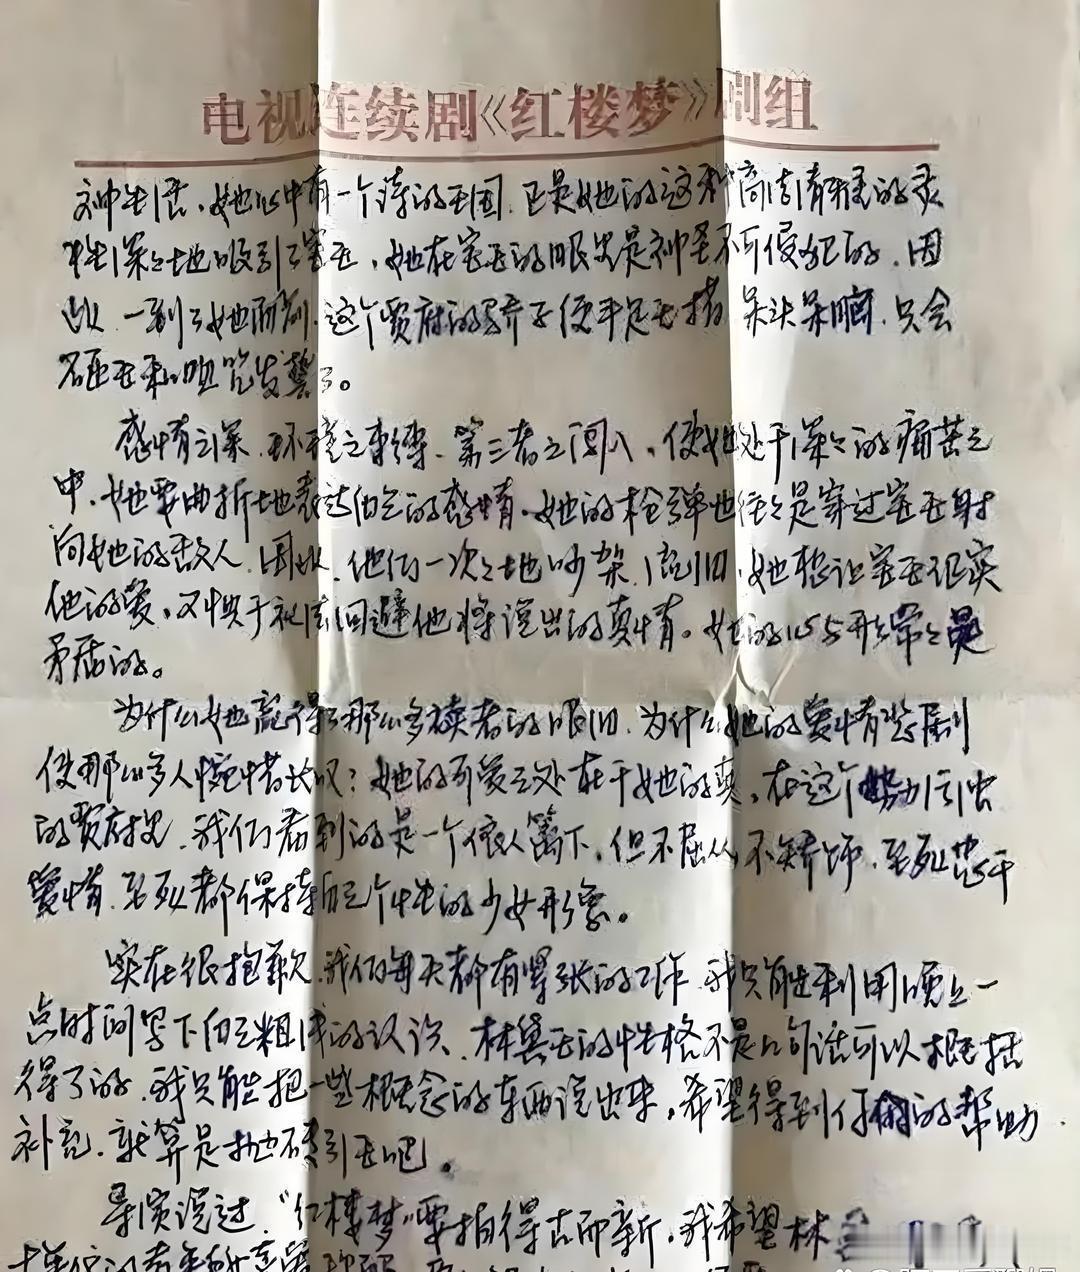 电视连续剧《红楼梦》剧组
她心中有一个诗的王国，正是她的这种高洁清雅的灵
性深深地吸引了宝玉，她在宝玉的眼里是神圣不可侵犯的，因
此，一到了她面前，这个贾府的骄子便手足无措，呆头呆脑，只会
发誓了。
感情之深，环境之束缚，第三者之闯入，使她处于深深的痛苦之
中，她要曲折地表达自己的感情，她的枪弹也往往是穿过宝玉射
向她的敌人，因此，他们一次次地吵架，流泪，她想让宝玉证实
他的爱，又惧于礼法回避他将说出的真情。她的心与形常常是
矛盾的。
为什么她赢得了那么多读者的眼泪，为什么她的爱情悲剧
使那么多人惋惜长叹？她的可爱之处在于她的真，在这个势力
的贾府里，我们看到的是一个依人篱下，但不屈从，不矫饰，至死忠于
爱情，至死都保持自己个性的少女形象。
实在很抱歉，我们每天都有紧张的工作，我只能利用晚上一
点时间写下自己粗浅的认识，林黛玉的性格不是几句话可以概括
得了的，我只能把一些概念的东西说出来，希望得到你们的帮助
补充，就算是抛砖引玉吧。
导演说过，“红楼梦”要拍得古而新，我希望林